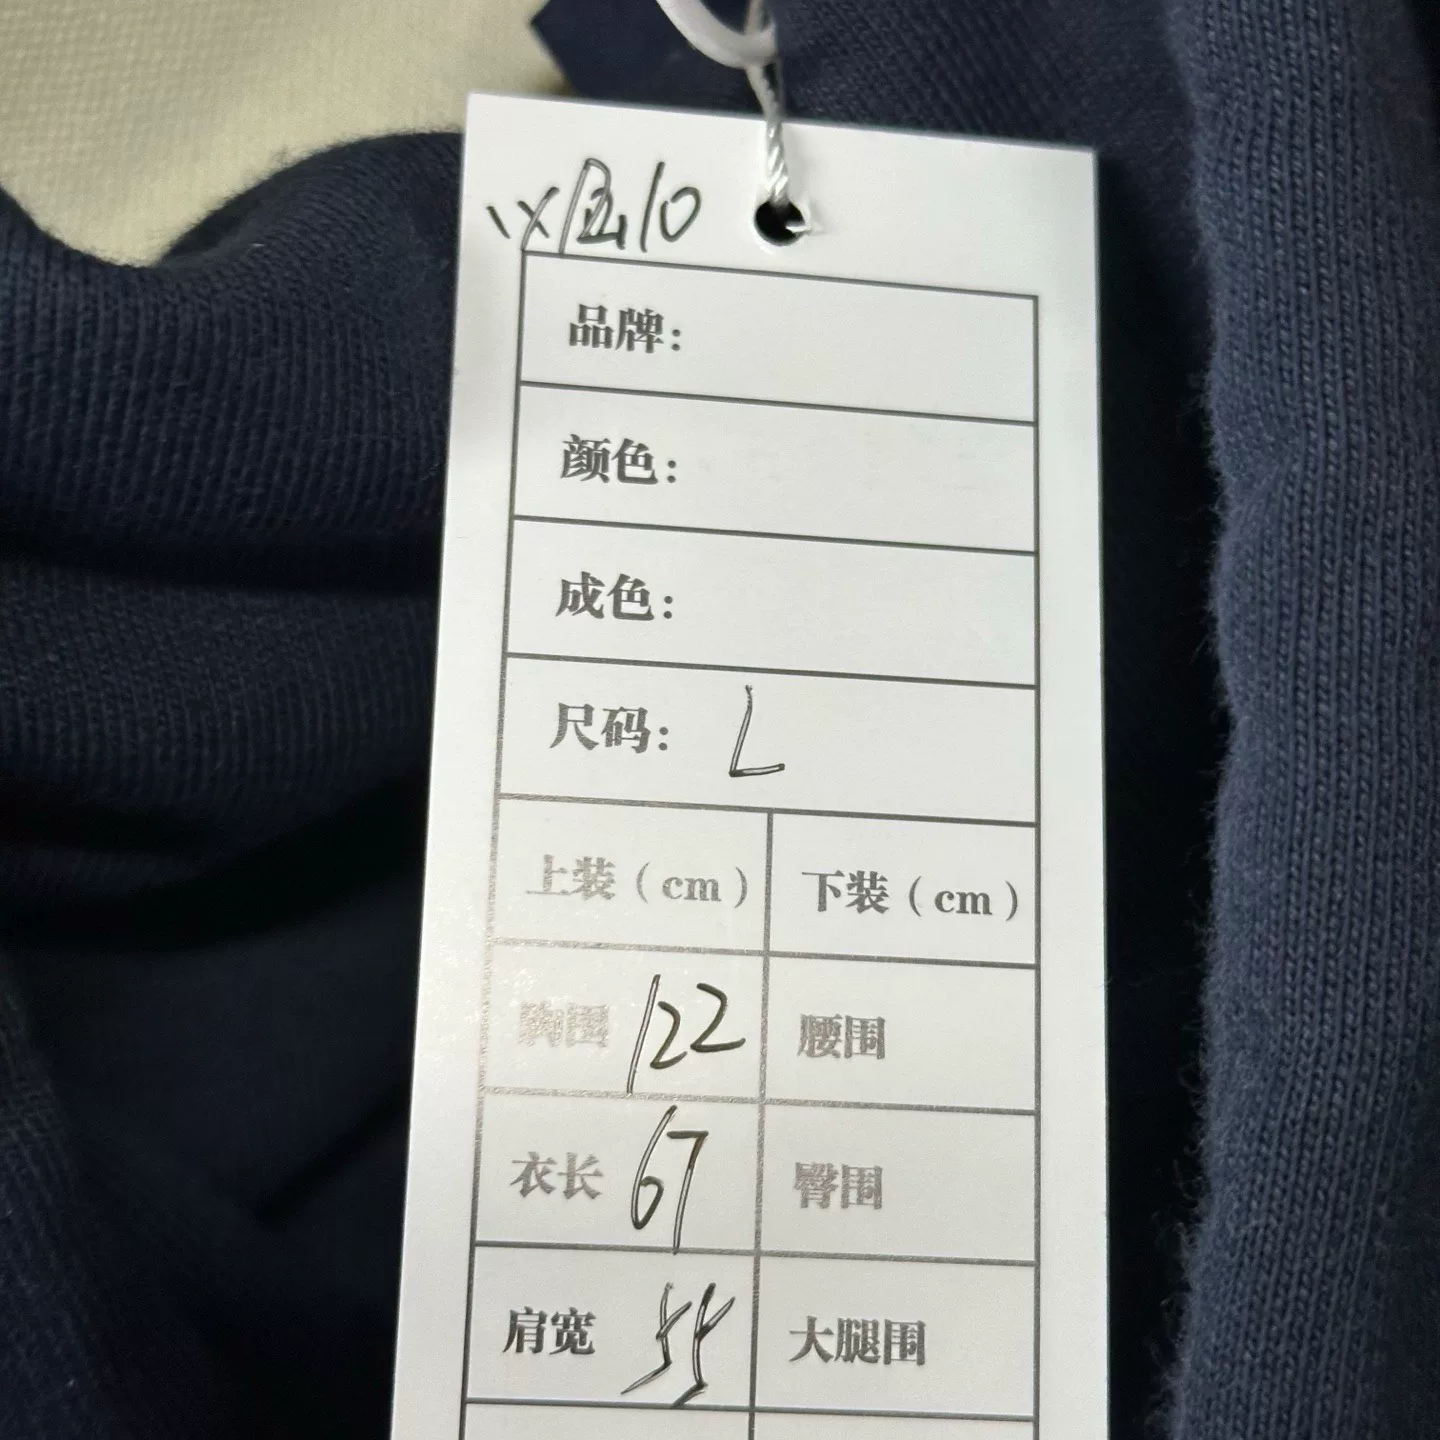 品牌：
颜色：
成色：
尺码： L
上装（cm） 下装（cm）
胸围 122 腰围
衣长 67 臀围
肩宽 55 大腿围